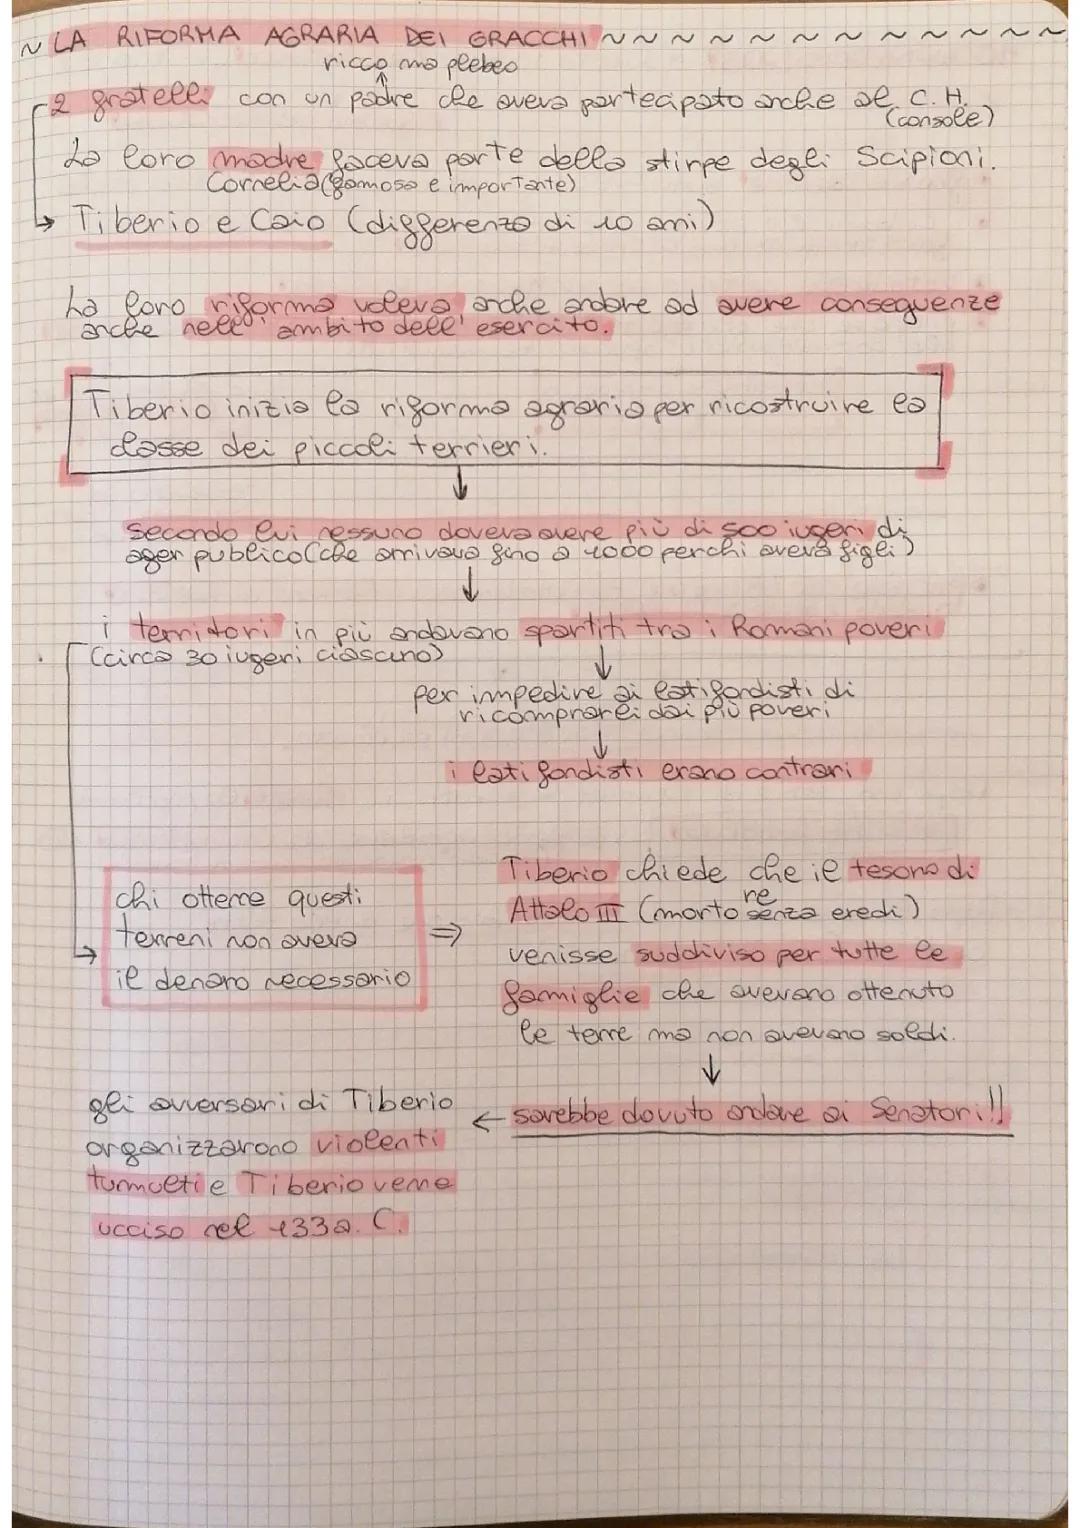 ~ LA RIFORMA AGRARIA DEI GRACCHI ~ ~ ~ ~ ~ ~ ~ ~ ~ ~ ~ ~
ricco ma plebeo
2 fratelli con un padre che aveva partecipato anche al C.H.
(console)
La loro madre faceva parte della stirpe degli Scipioni.
Cornelia (famosa e importante)
Tiberio e Caio (differenza di 10 anni)
La loro riforma voleva anche andare ad avere conseguenze
anche nell'ambito dell'esercito.
Tiberio inizia la riforma agraria per ricostruire la
classe dei piccoli terrieri.
↓
Secondo lui nessuno doveva avere più di 500 iugeri di
ager publico (che arrivava fino a 1000 per chi aveva figli)
↓
i territori in più andavano spartiti tra i Romani poveri
(circa 30 iugeri ciascuno)
↓
per impedire ai latifondisti di
ricomprarli dai più poveri
↓
i latifondisti erano contrari
chi ottenne questi
terreni non aveva
il denaro necessario
⇒
Tiberio chiede che il tesoro di
re
Attalo III (morto senza eredi)
venisse suddiviso per tutte le
famiglie che avevano ottenuto
le terre ma non avevano soldi.
↓
← sarebbe dovuto andare ai Senatori!!
gli avversari di Tiberio
organizzarono violenti
tumulti e Tiberio venne
ucciso nel 133 a.C.